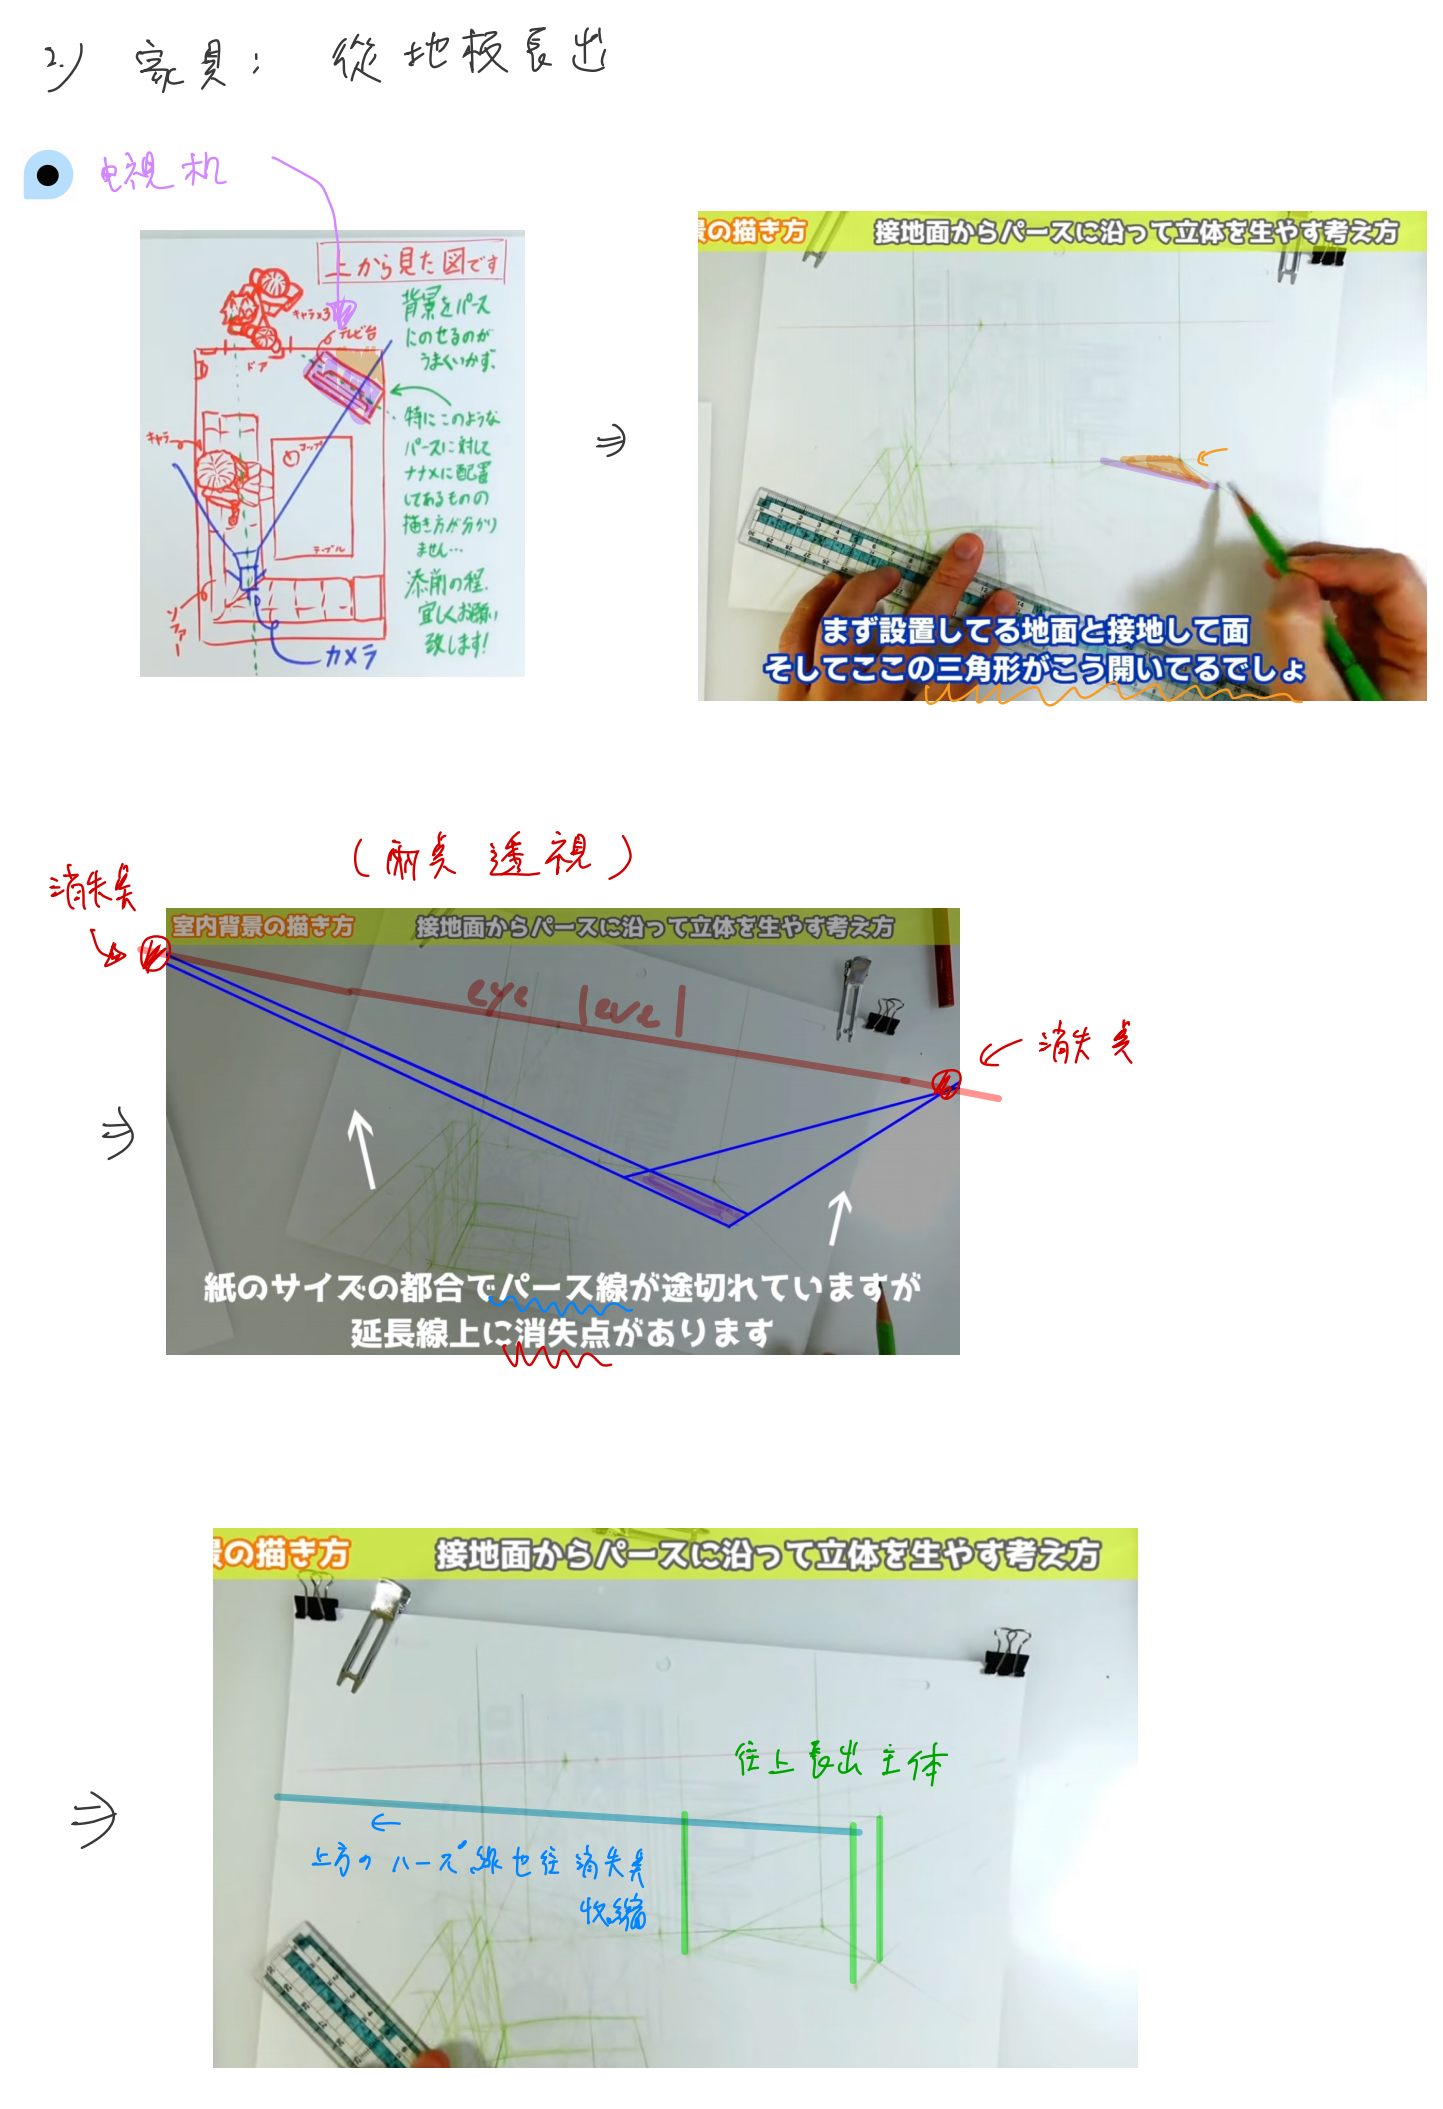 2.) 家具： 從地板長出
电視机
上から見た図です
キャラ×3
テレビ台
ドア
背景をパース
にのせるのが
うまくいかず、
特にこのような
パースに対して
ナナメに配置
してあるものの
描き方が分かり
ません…
添削の程、
宜しくお願い
致します！
キャラ
コップ
テーブル
ソファー
カメラ
景の描き方
接地面からパースに沿って立体を生やす考え方
まず設置してる地面と接地して面
そしてここの三角形がこう開いてるでしょ
（兩點透視）
消失點
室内背景の描き方
接地面からパースに沿って立体を生やす考え方
eye level
消失點
紙のサイズの都合でパース線が途切れていますが
延長線上に消失点があります
景の描き方
接地面からパースに沿って立体を生やす考え方
往上長出主体
上方のパース線也往消失點
收縮